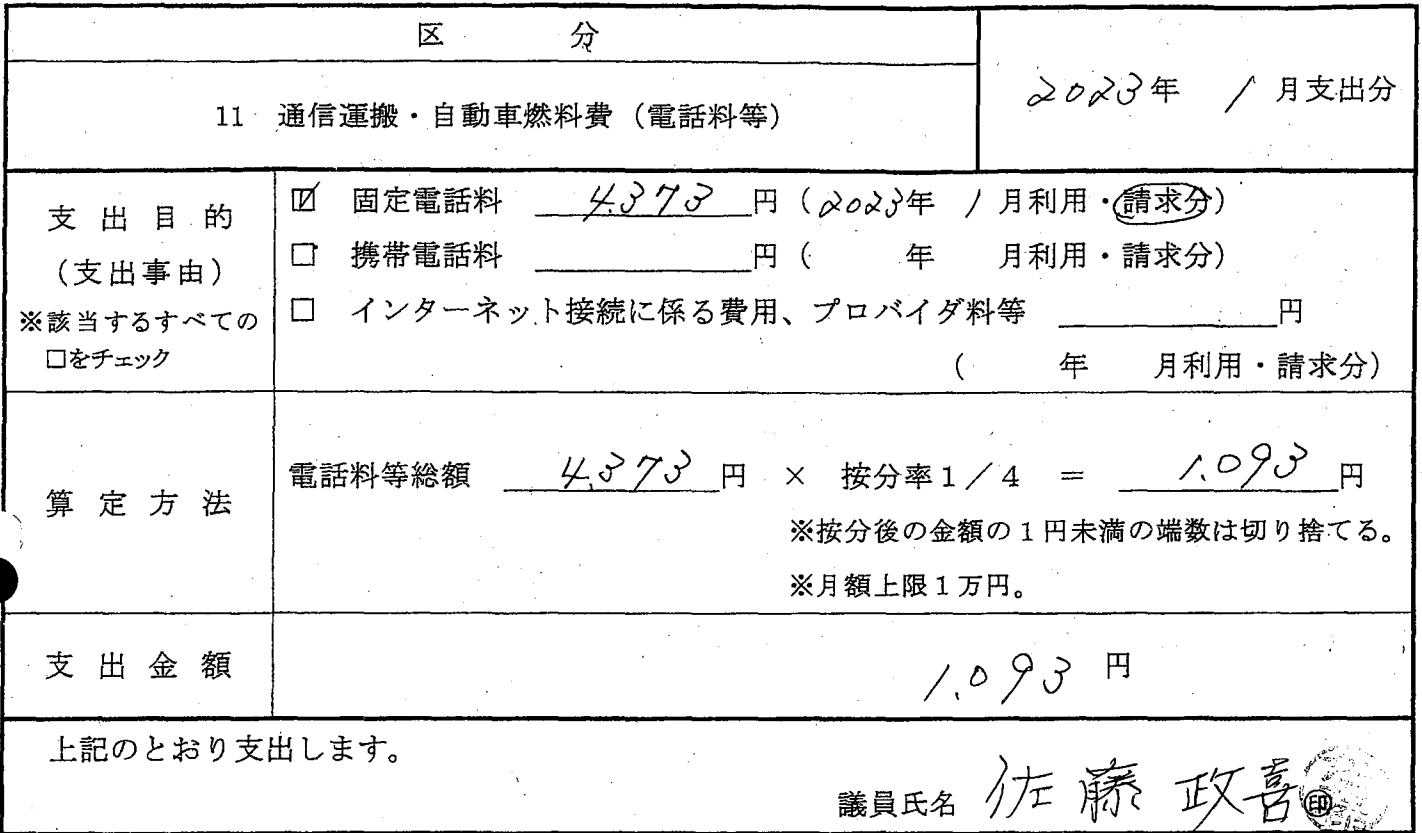 区 分
2023年 1月支出分
11 通信運搬・自動車燃料費(電話料等)
支出目的
(支出事由)
※該当するすべての
□をチェック
☑ 固定電話料 4.373円(2023年1月利用・請求分)
□ 携帯電話料 円( 年 月利用・請求分)
□ インターネット接続に係る費用、プロバイダ料等 円
( 年 月利用・請求分)
算定方法
電話料等総額 4.373円 × 按分率1/4 = 1.093円
※按分後の金額の1円未満の端数は切り捨てる。
※月額上限1万円。
支出金額
1.093円
上記のとおり支出します。
議員氏名 佐藤 政喜 ㊞